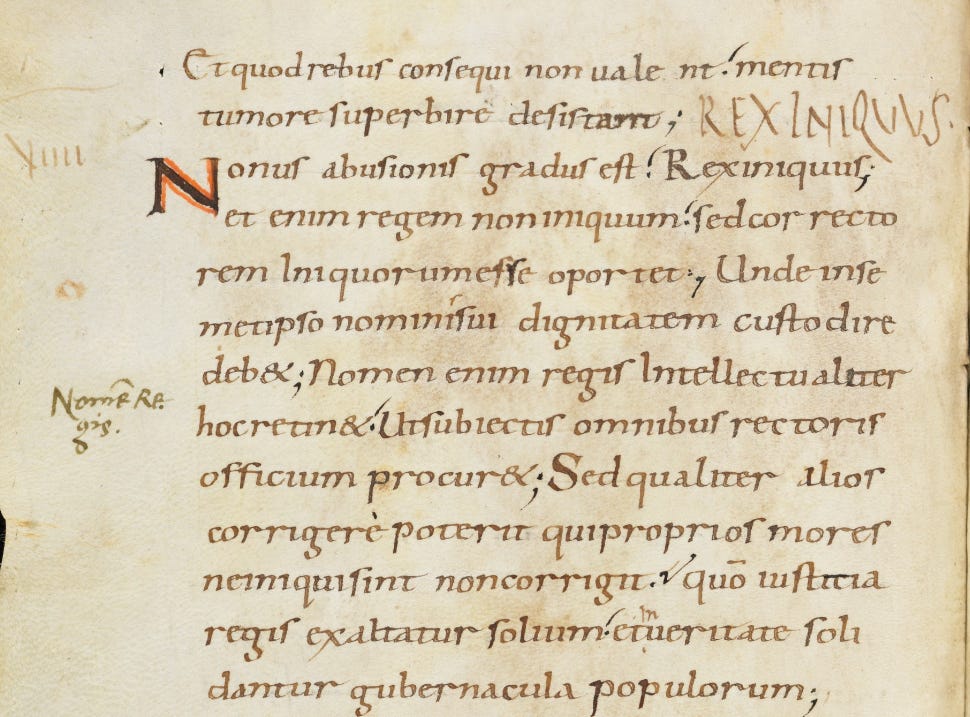 Et quod rebus consequi non valent. mentis
tumore superbire desistant; REX INIQUUS.
VIIII
Nonus abusionis gradus est. Rex iniquus;
et enim regem non iniquum. sed correcto
rem Iniquorum esse oportet; Unde in se
metipso nominis sui dignitatem custodire
deb&; Nomen enim regis Intellectualiter
Nomē Re
gis.
hoc retin&. Ut subiectis omnibus rectoris
officium procur&; Sed qualiter alios
corrigere poterit qui proprios mores
ne iniqui sint non corrigit. quō iustitia
regis exaltatur solium. et in veritate soli
dantur gubernacula populorum;